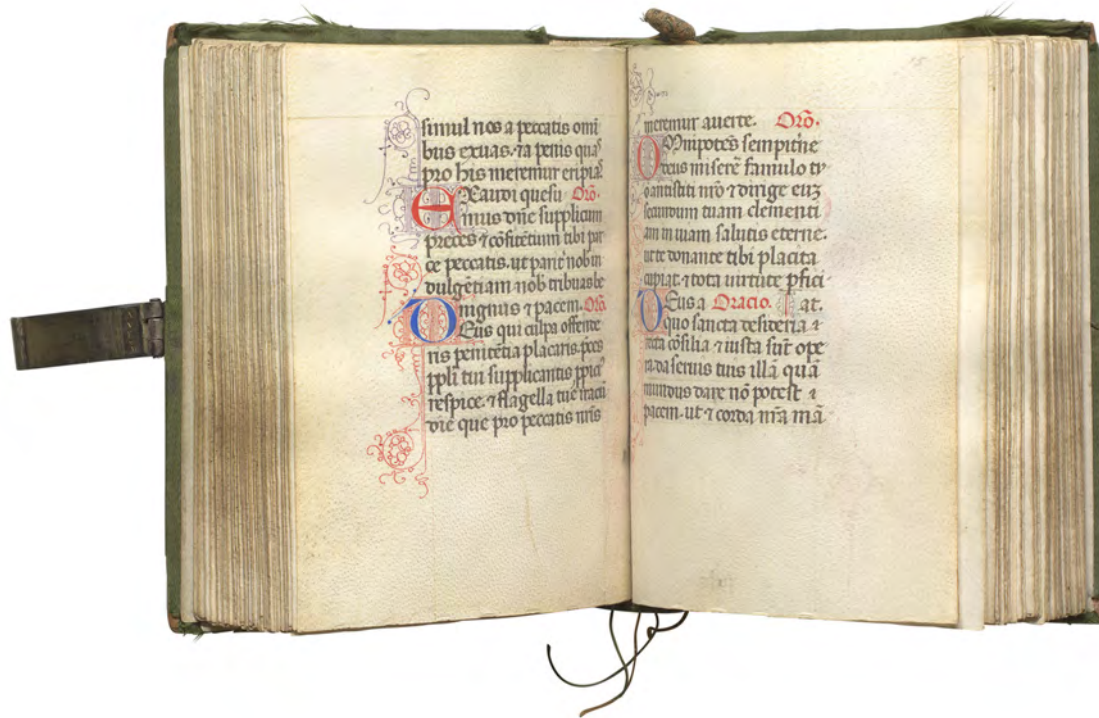 simul nos a peccatis omī
bus exuas. ⁊ a penis quas
pro his meremur eripias
EXaudi quesu Orō.
mus dn̄e supplicum
preces ⁊ cōfitētium tibi par
ce peccatis. ut parit̄ nob̄ in
dulgētiam ⁊ nob̄ tribuas be
nignus ⁊ pacem. Orō
DEus qui culpa offende
ris penitētia placaris. p̄ces
pp̄li tui supplicantis pp̄ici
respice. ⁊ flagella tue iracū
die que pro peccatis nr̄is
15
meremur auerte. Orō.
OMnipotēs sempit̄ne
deus miserē famulo tu
o antistiti nr̄o ⁊ dirige euꝫ
secundum tuam clementi
am in uiam salutis eterne.
ut te donante tibi placita
cupiat. ⁊ tota uirtute ꝑfici
DEus a Oracio. at.
quo sancta desideria ⁊
recta cōsilia ⁊ iusta sūt ope
ra. da seruis tuis illā quā
mundus dare nō potest ⁊
pacem. ut ⁊ corda nr̄a mā